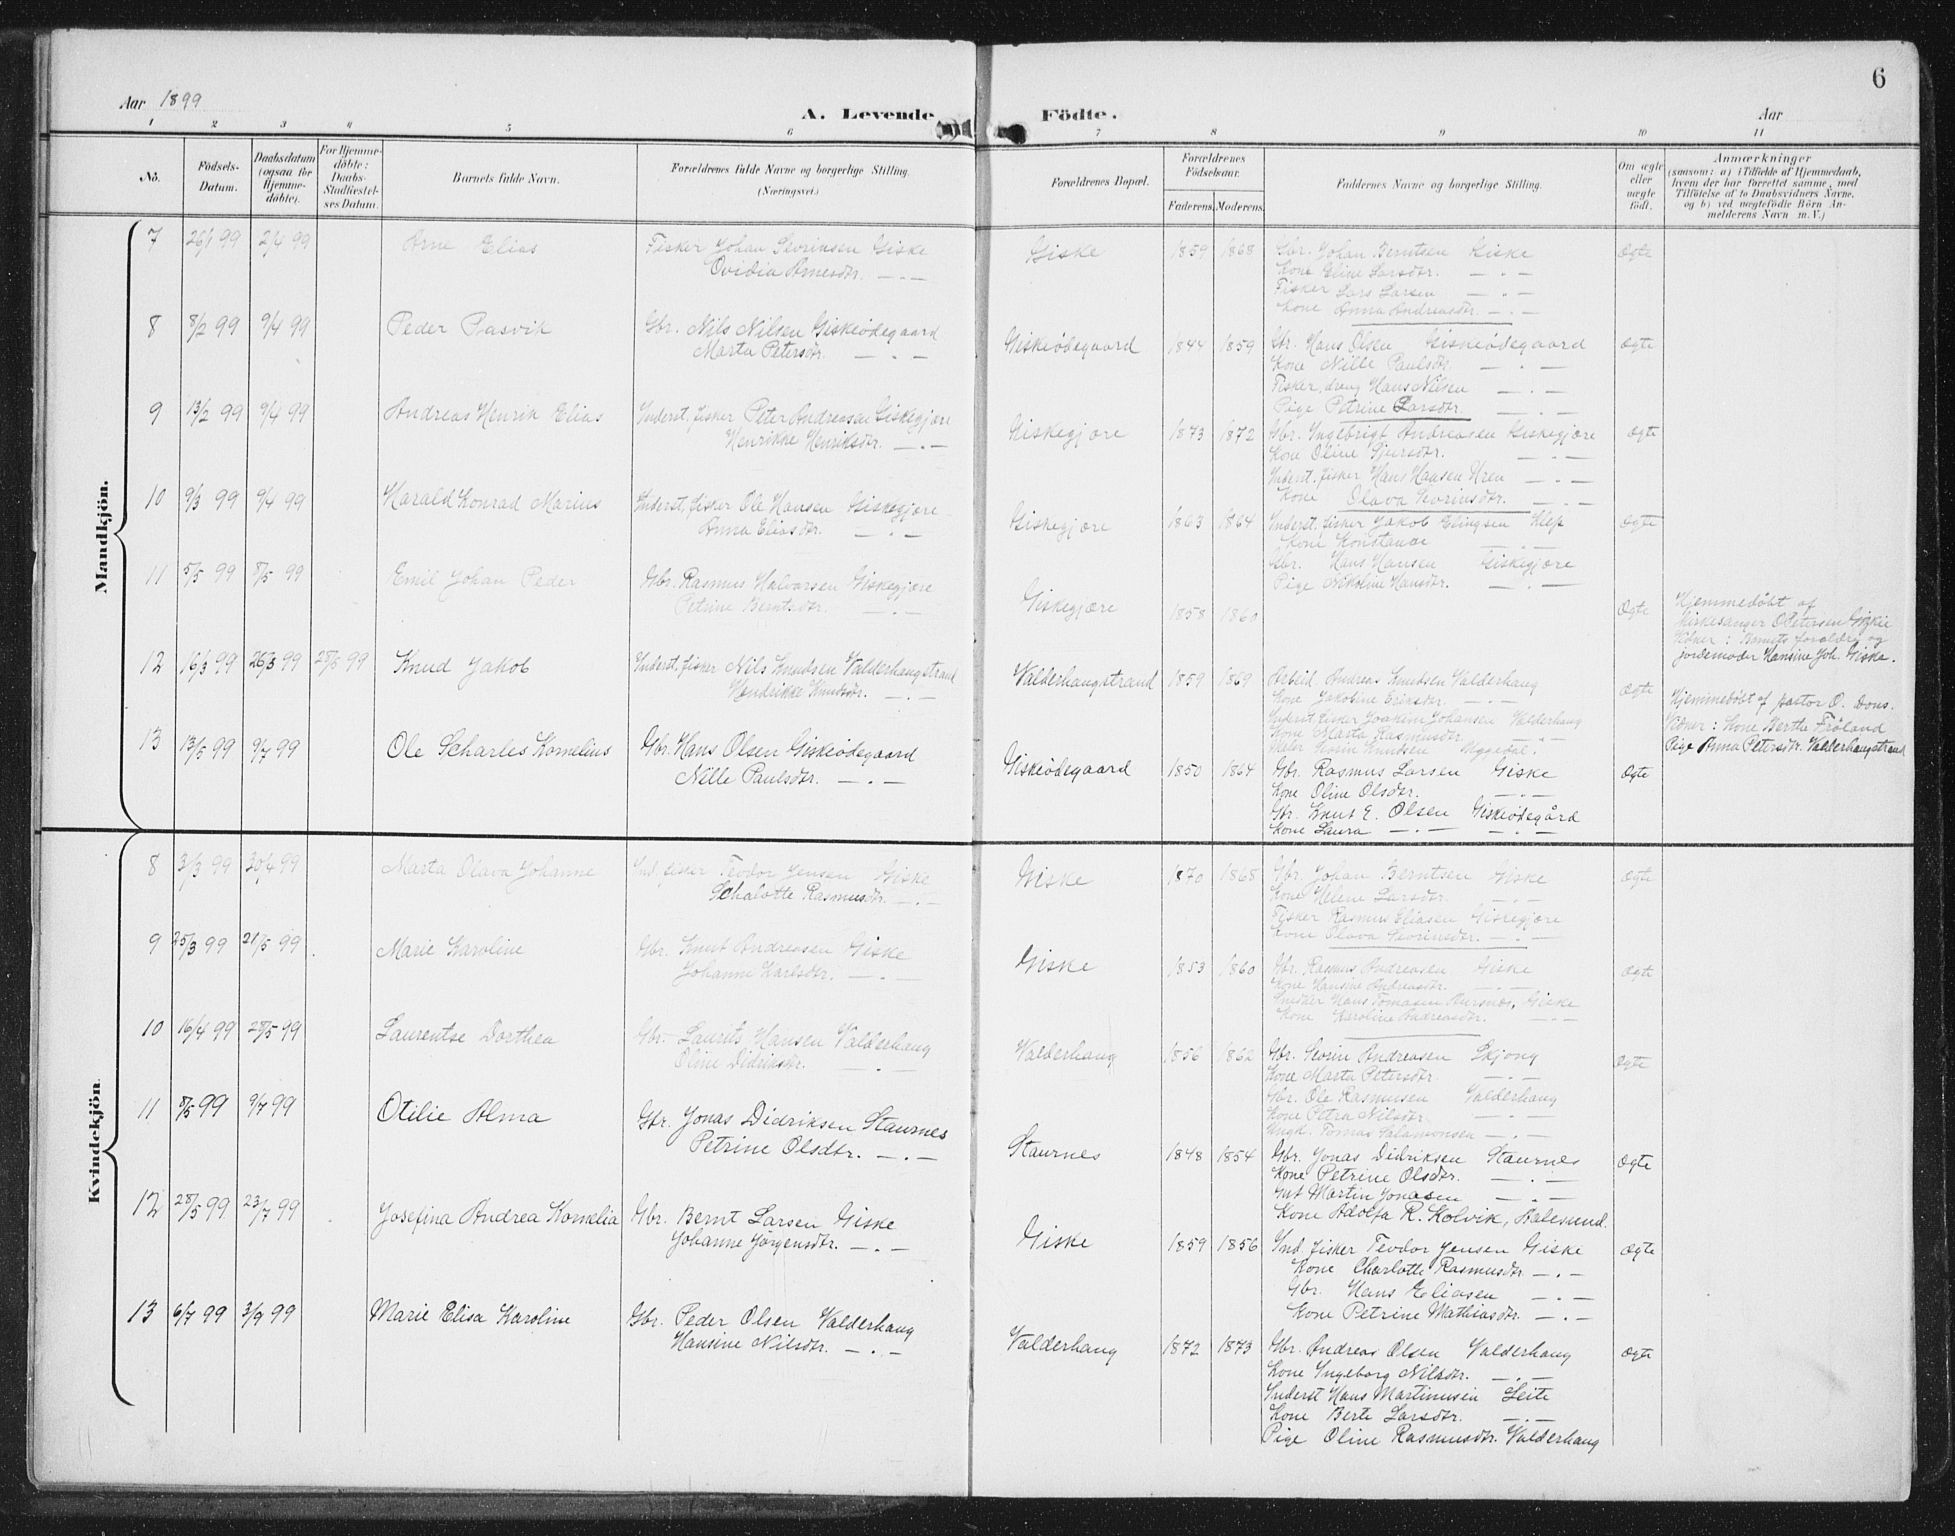 6
Aar 1899
A. Levende Födte.
Aar
1 2 3 4 5 6 7 8 9 10 11
No.
Födsels-Datum.
Daabsdatum (ogsaa för Hjemmedöbte).
For Hjemmedöbte: Daabs-Stadfæstelses Datum.
Barnets fulde Navn.
Forældrenes fulde Navne og borgerlige Stilling. (Næringsvei.)
Forældrenes Bopæl.
Forældrenes Födselsaar.
Faderens. Moderens.
Faddernes Navne og borgerlige Stilling.
Om ægte eller uægte födt.
Anmærkninger
(saasom: a) i Tilfælde af Hjemmedaab, hvem der har forrettet samme, med Tilföielse af to Daabsvidners Navne, og b) ved uægtefödte Börn Anmelderens Navn m. V.)
Mandkjön.
7 26/1 99 2/4 99 Arne Elias Fisker Johan Sevrinsen Giske Giske 1859 1868 Gbr. Johan Berntsen Giske Ægte
Ovidia Arnesdtr. — . — Kone Eline Larsdtr. — . —
Fisker Lars Larsen — . —
Kone Anna Andreasdtr. — . —
8 8/2 99 9/4 99 Peder Pasvik Gbr. Nils Nilsen Giskeödegaard Giskeödegaard 1844 1859 Gbr. Hans Olsen Giskeödegaard Ægte
Marta Petersdtr. — . — Kone Nille Paulsdtr. — . —
Fisker, dreng Hans Nilsen — . —
Pige Petrine Larsdtr. — . —
9 13/2 99 9/4 99 Andreas Henrik Elias Inderst, fisker Peter Andreasen Giskegjære Giskegjære 1873 1872 Gbr. Ingebrigt Andreasen Giskegjære Ægte
Henrikke Henriksdtr. — . — Kone Oline Sjursdtr. — . —
Inderst. fisker Hans Hansen — . —
Kone Olava Sevrinsdtr. — . —
10 9/3 99 9/4 99 Harald Konrad Marius Inderst, fisker Ole Hansen Giskegjære Giskegjære 1863 1864 Inderst. fisker Jakob Elingsen Klep Ægte
Anna Eliasdtr. — . — Kone Konstanse — . —
Gbr. Hans Hansen Giskegjære
Pige Nikoline Hansdtr. — . —
11 5/5 99 8/5 99 Emil Johan Peder Gbr. Rasmus Halvorsen Giskegjære Giskegjære 1858 1860 Ægte Hjemmedöbt af
Petrine Berntsdtr. — . — Kirkesanger O. Petersen Giske
Vidner: Barnets forældre og
jordemoder Hansine Joh. Giske.
12 16/3 99 26/3 99 28/5 99 Knud Jakob Inderst. fisker Nils Knudsen Valderhaugstrand Valderhaugstrand 1859 1869 Arbeid. Andreas Knudsen Valderhaug Ægte Hjemmedöbt af pastor O. Dons.
Hendrikke Knudsdtr. — . — Kone Jakobine Eriksdtr. — . — Vidner: Kone Berthe Fröland
Inderst. Fisker Joakim Johansen Valderhaug Pige Anna Petersdtr. Valderhaugstrand
Kone Marta Rasmusdtr. — . —
Knudsen
13 13/5 99 9/7 99 Ole Scharles Kornelius Gbr. Hans Olsen Giskeödegaard Giskeödegaard 1850 1864 Gbr. Rasmus Larsen Giske Ægte
Nille Paulsdtr. — . — Kone Oline Olsdtr. — . —
Gbr. Knut E. Olsen Giskeödegård
Kone Laura — . — — . —
Kvindekjön.
8 3/3 99 30/4 99 Marta Olava Johanne Ind. fisker Teodor Jensen Giske Giske 1870 1868 Gbr. Johan Berntsen Giske Ægte
Schalotte Rasmusdtr. — . — Kone Helene Larsdtr. — . —
Fisker Rasmus Eliasen Giskegjære
Kone Olava Sevrinsdtr. — . —
9 25/3 99 21/5 99 Marie Karoline Gbr. Knut Andreasen Giske Giske 1853 1860 Gbr. Rasmus Andreasen Giske Ægte
Johanne Karlsdtr. — . — Kone Hansine Andreasdtr. — . —
Snidker Hans Tomasen Aursnes, Giske
Kone Karoline Andreasdtr. — . —
10 16/4 99 28/5 99 Laurentse Dorthea Gbr. Laurits Hansen Valderhaug Valderhaug 1856 1862 Gbr. Sevrin Andreasen Skjong Ægte
Oline Didriksdtr. — . — Kone Marta Petersdtr. — . —
Gbr. Ole Rasmussen Valderhaug
Kone Petra Nilsdtr. — . —
Ungk. Tomas Salamonsen — . —
11 8/5 99 9/7 99 Otilie Alma Gbr. Jonas Didriksen Staurnes Staurnes 1848 1854 Gbr. Jonas Didriksen Staurnes Ægte
Petrine Olsdtr. — . — Kone Petrine Olsdtr. — . —
Gut Martin Jonasen — . —
Kone Adolfa R. Kolvik, Aalesund.
12 28/5 99 23/7 99 Josefina Andrea Kornelia Gbr. Bernt Larsen Giske Giske 1859 1856 Ind. fisker Teodor Jensen Giske Ægte
Johanne Jörgensdtr. — . — Kone Charlotte Rasmusdtr. — . —
Gbr. Hans Eliasen — . —
Kone Petrine Mathiasdtr. — . —
13 6/7 99 3/9 99 Marie Elisa Karoline Gbr. Peder Olsen Valderhaug Valderhaug 1872 1873 Gbr. Andreas Olsen Valderhaug Ægte
Hansine Nilsdtr. — . — Kone Ingeborg Nilsdtr. — . —
Inderst Hans Martinusen Leite
Kone Berte Larsdtr. — . —
Pige Oline Rasmusdtr. Valderhaug